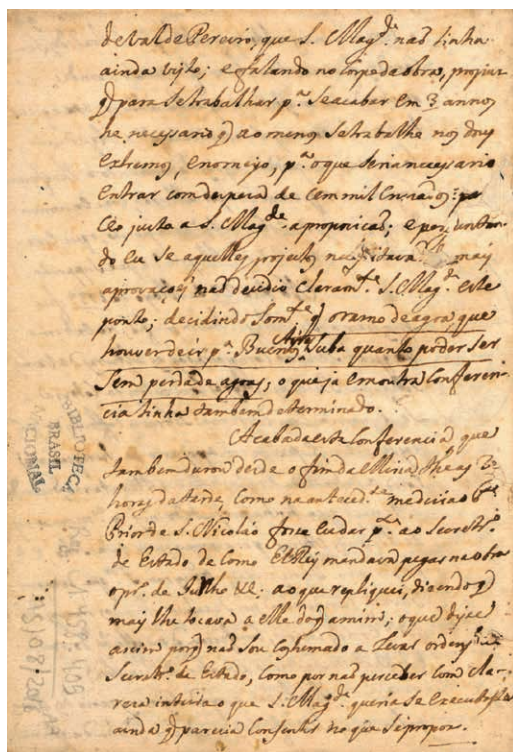 de Val de Pereiro, que S. Mag.de naõ tinha
ainda visto; e falando no da obra,
q para se trabalhar p.a se acabar em 3 annos
he necessario q ao menos se trabalhe nos dous
extremos, e no meyo, p.a o que seria necessario
entrar com despeza de cem mil Cruzados:
ceo justo a S. Mag.de a proposicaõ; e preguntan-
do eu se aquelles projectos necessitavaõ mais
aprovaçoes naõ decidio claram.te S. Mag.de este
ponto; decidindo som.te q o ramo de agoa que
houver de ir p.a Buenos Ayres suba quanto poder ser
sem perda de agoas, o que ja em outra Conferen-
cia tinha tambem determinado.
Acabada esta Conferencia que
tambem durou desde o fim da Missa the as 3
horas da tarde, como na anteced.te me dizia o
Prior de S. Nicoláo fosse eu dar p.te ao Secretr.o
de Estado de como ElRey mandava pegar na obra
o pr.o de Junho &c: ao que repliquei, dizendo q
mais lhe tocava a elle do q a mim; o que disse
assim porq naõ sou costumado a levar ordens
Secretr.o de Estado, como por naõ perceber com cla-
reza inteira o que S. Mag.de queria se executasse
ainda q parecia consentir no que se propoz.
BIBLIOTECA
NACIONAL
BRASIL